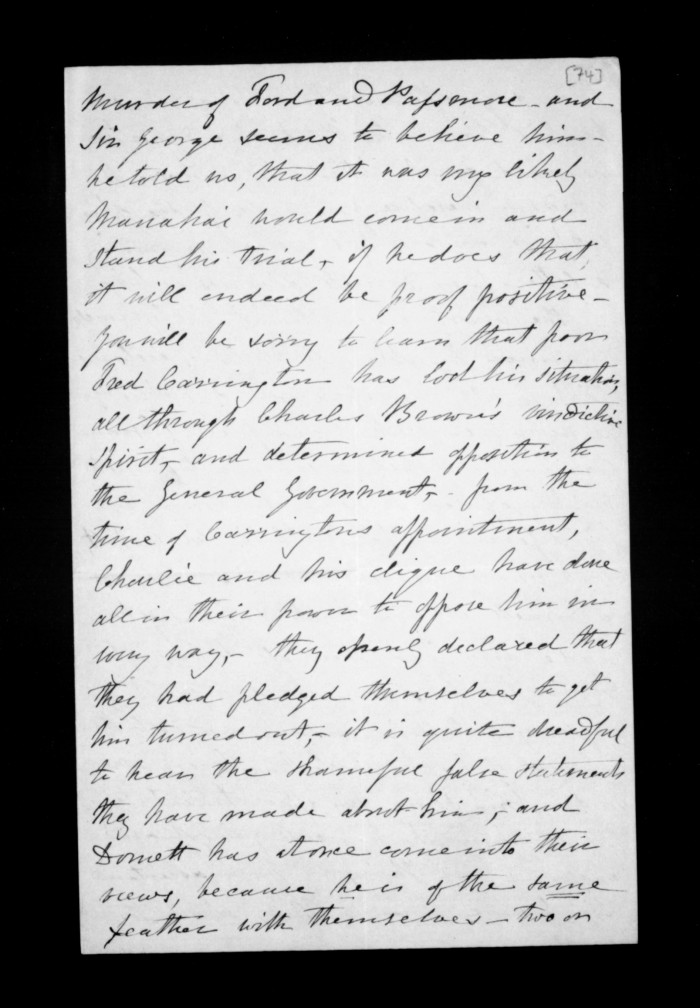 [74]
Murder of Ford and Passmore - and
Sir George seems to believe him -
he told us, that it was very likely
Manahai would come in and
stand his trial, - if he does that,
it will indeed be proof positive -
You will be sorry to learn that poor
Fred Carrington has lost his situation,
all through Charles Brown's vindictive
spirit, - and determined opposition to
the General Government, - from the
time of Carringtons appointment,
Charlie and his clique have done
all in their power to oppose him in
every way, - they openly declared that
they had pledged themselves to get
him turned out, - it is quite dreadful
to hear the shameful false statements
they have made about him, - and
Domett has at once come into their
views, because he is of the same
feather with themselves - two or